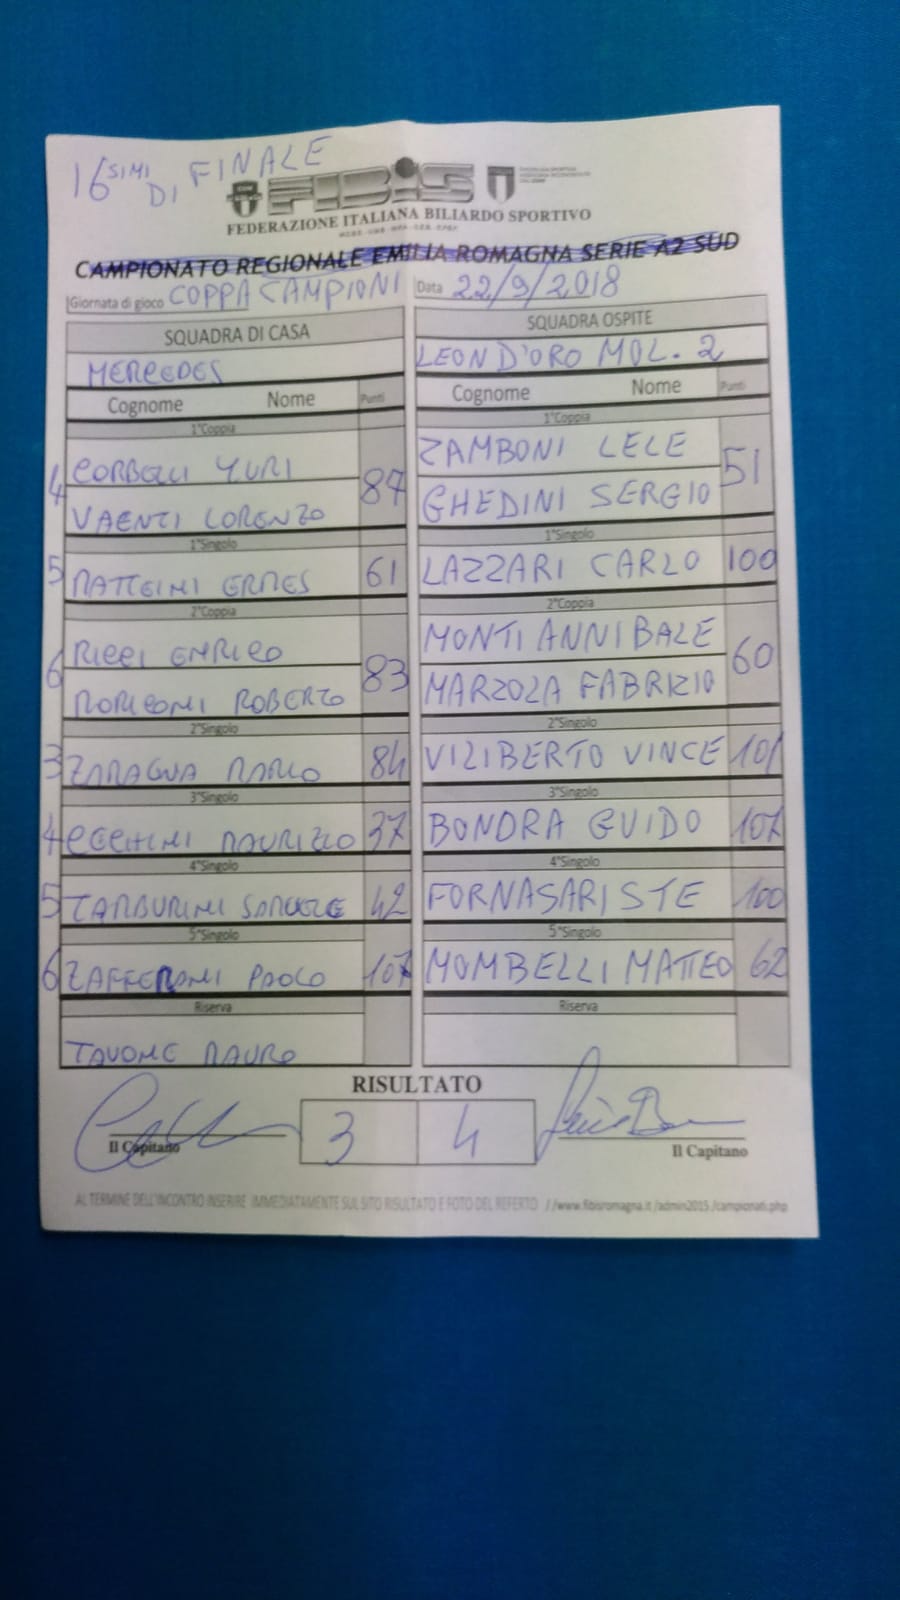 16SIMI DI FINALE
FIBIS
FEDERAZIONE ITALIANA BILIARDO SPORTIVO
CAMPIONATO REGIONALE EMILIA ROMAGNA SERIE A2 SUD
Giornata di gioco COPPA CAMPIONI Data 22/9/2018
SQUADRA DI CASA SQUADRA OSPITE
MERCEDES LEON D'ORO MOL. 2
Cognome Nome Punti Cognome Nome Punti
1°Coppia 1°Coppia
4 CORBELLI YURI 87 ZAMBONI LELE 51
VAENTI LORENZO GHEDINI SERGIO
1°Singolo 1°Singolo
5 MATTEINI ERMES 61 LAZZARI CARLO 100
2°Coppia 2°Coppia
6 RICCI ENRICO 83 MONTI ANNIBALE 60
MORICONI ROBERTO MARZOLA FABRIZIO
2°Singolo 2°Singolo
3 ZARAGNA MARCO 84 VILIBERTO VINCE 101
3°Singolo 3°Singolo
4 CECCHINI MAURIZIO 37 BONDRA GUIDO 107
4°Singolo 4°Singolo
5 TAMBURINI SAMUELE 42 FORNASARI STE 100
5°Singolo 5°Singolo
6 ZAFFERANI PAOLO 107 MOMBELLI MATTEO 62
Riserva Riserva
TAVONE MAURO
RISULTATO
Il Capitano 3 4 Il Capitano
AL TERMINE DELL'INCONTRO INSERIRE IMMEDIATAMENTE SUL SITO RISULTATO E FOTO DEL REFERTO //www.fibisromagna.it/admin2015/campionati.php